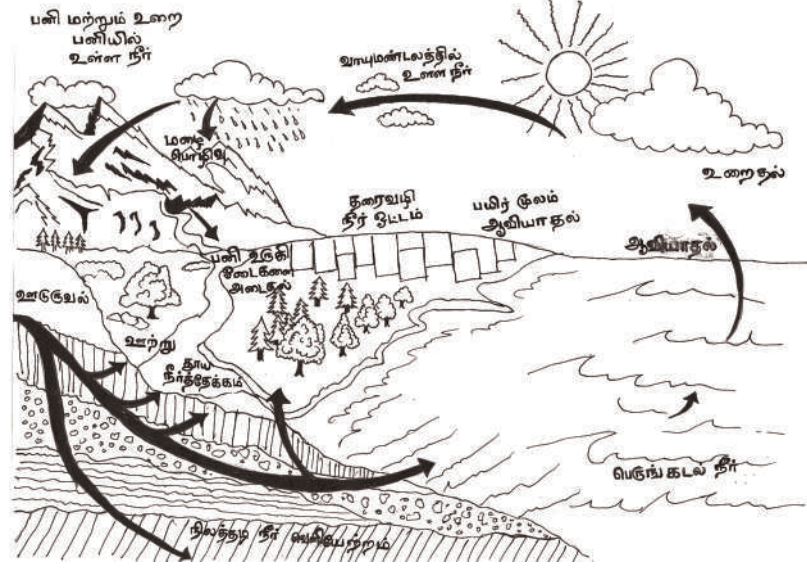 பனி மற்றும் உறை
பனியில்
உள்ள நீர்
வாயுமண்டலத்தில்
உள்ள நீர்
மழை
பொழிவு
உறைதல்
தரைவழி
நீர் ஓட்டம்
பயிர் மூலம்
ஆவியாதல்
ஆவியாதல்
பனி உருகி
அடைதல்
ஊடுருவல்
ஊற்று
தூய
நீர்த்தேக்கம்
பெருங்கடல் நீர்
நிலத்தடி நீர் வெளியேற்றம்